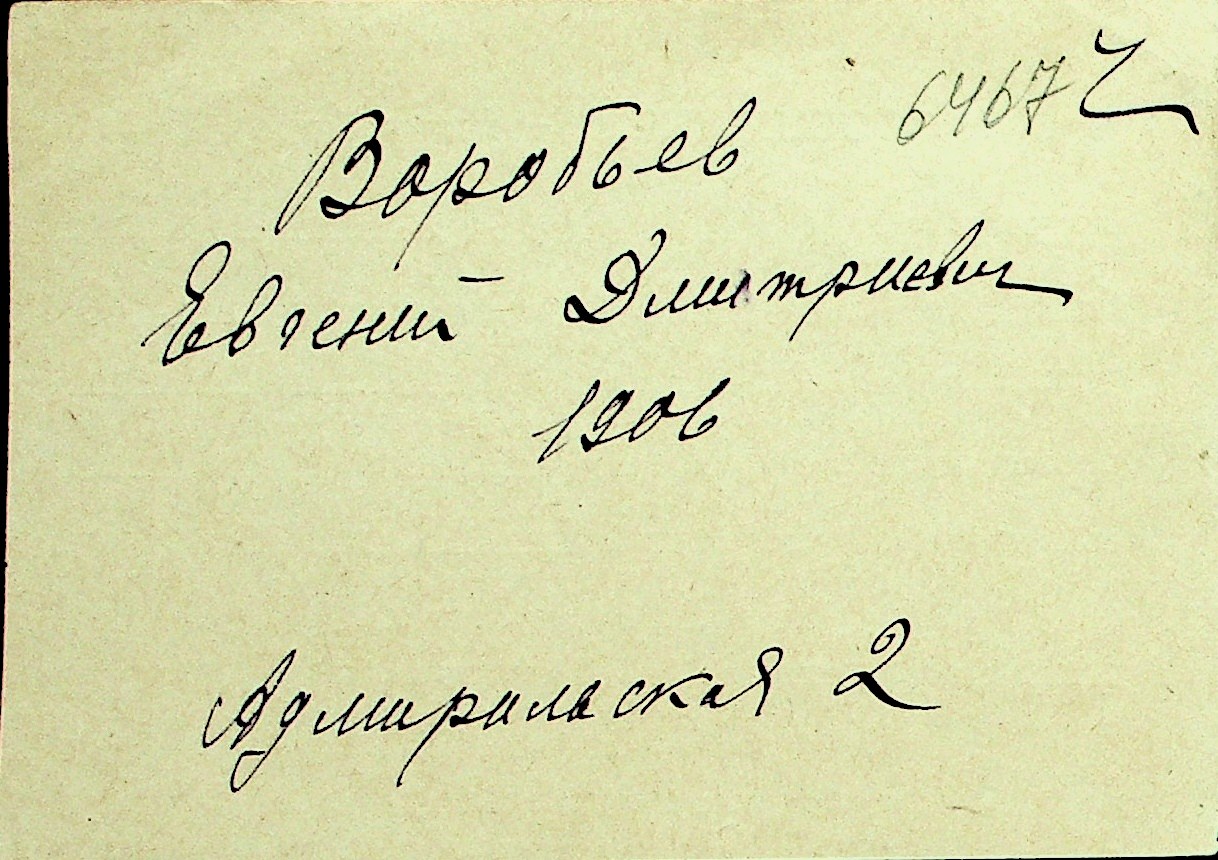 6467 Ч
Воробьев
Евгений Дмитриевич
1906
Адмиральская 2